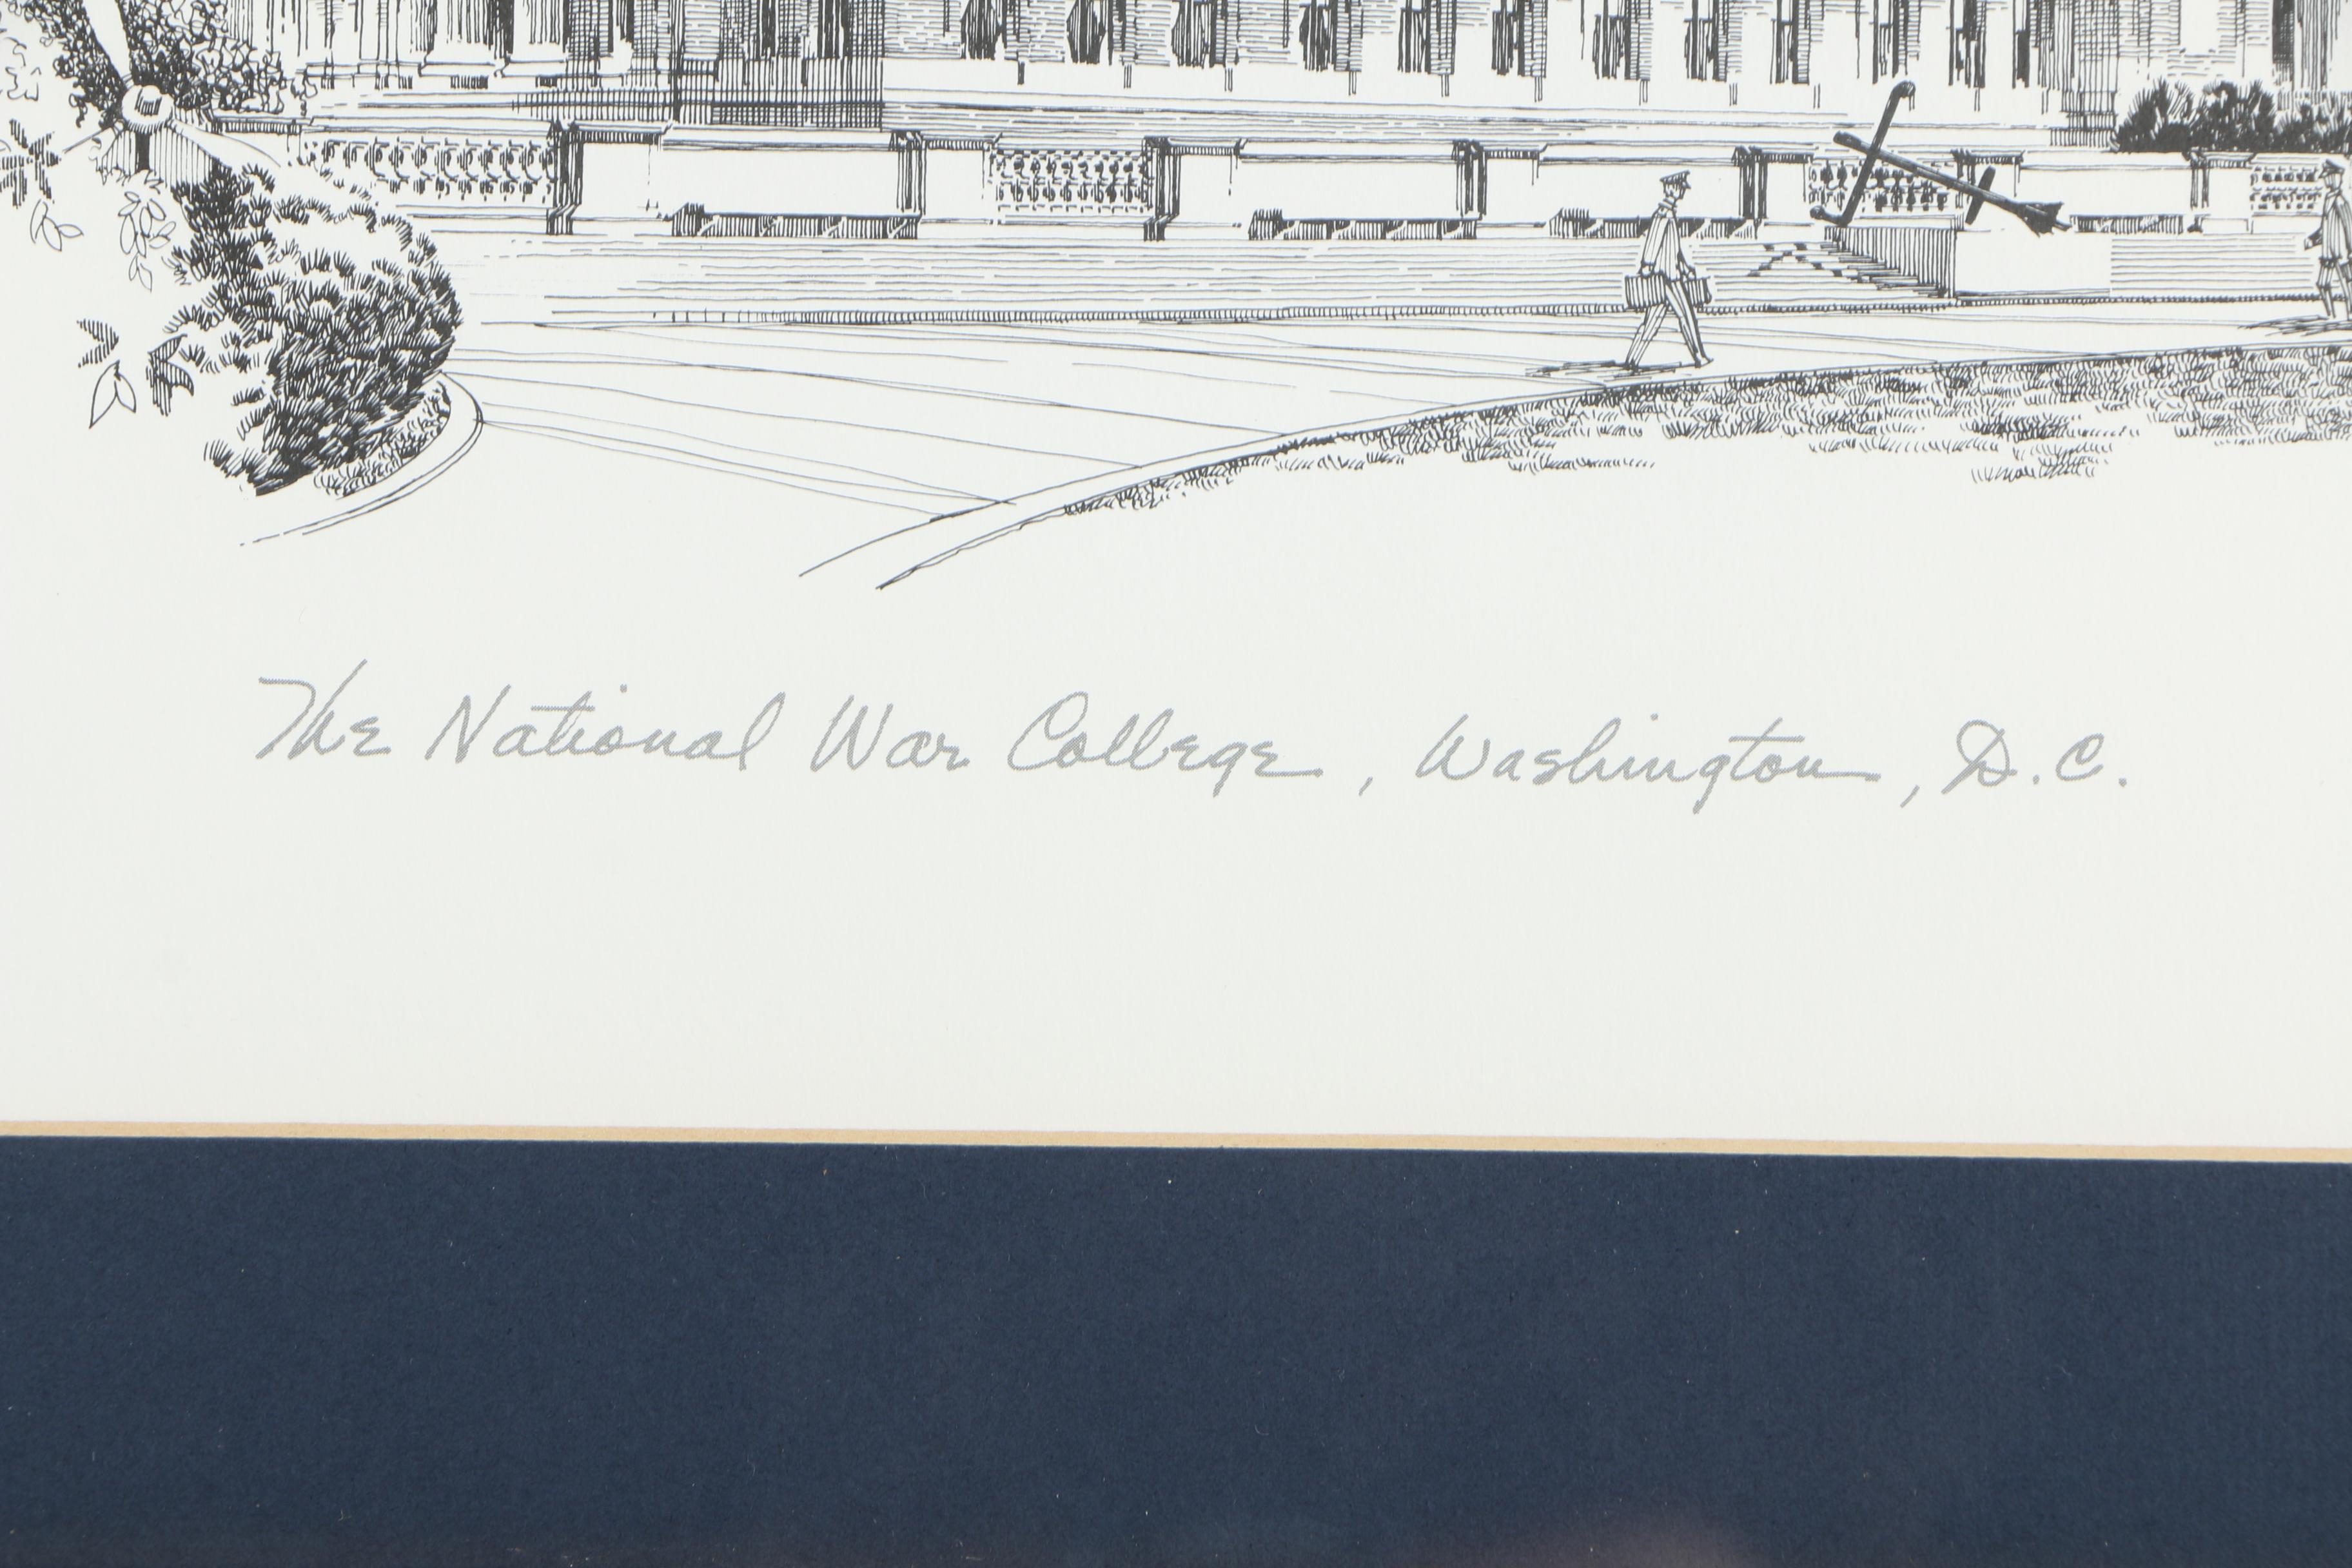 The National War College, Washington, D.C.